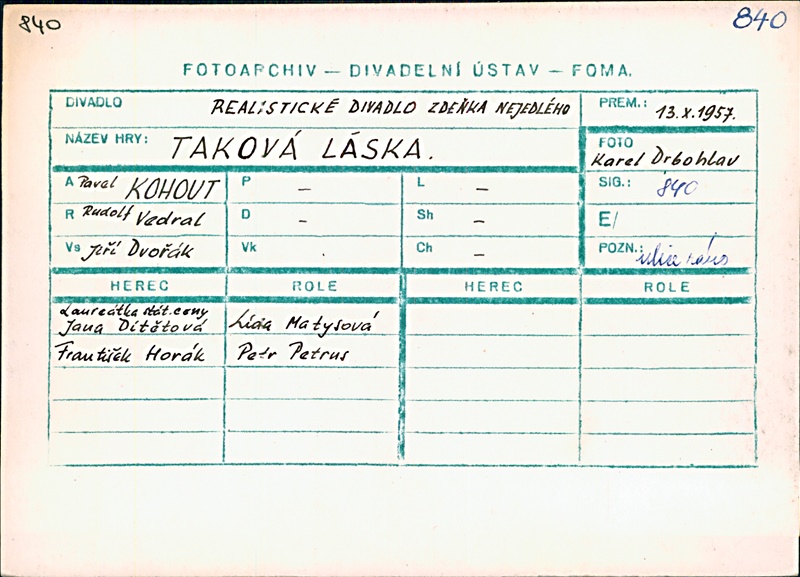 840
840
FOTOARCHIV — DIVADELNÍ ÚSTAV — FOMA.
DIVADLO REALISTICKÉ DIVADLO ZDEŇKA NEJEDLÉHO PREM.: 13.X.1957.
NÁZEV HRY: TAKOVÁ LÁSKA. FOTO Karel Drbohlav
A Pavel KOHOUT P — L — SIG.: 840
R Rudolf Vedral D — Sh — E/
Vs Jiří Dvořák Vk . Ch — POZN.: ulice
HEREC ROLE HEREC ROLE
Laureátka stát. ceny
Jana Dítětová Lída Matysová
František Horák Petr Petrus